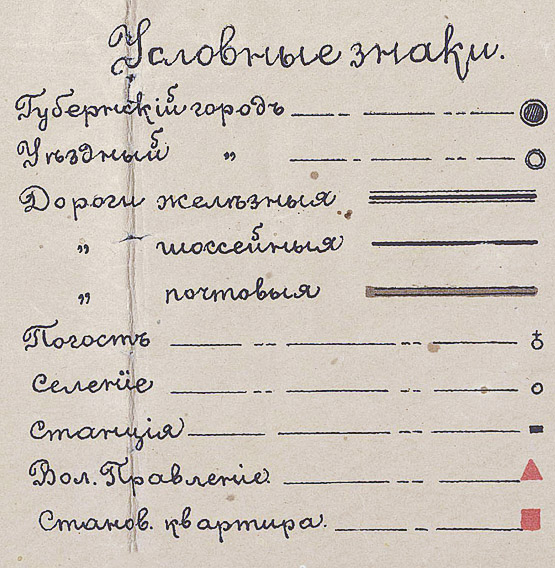 Условные знаки.
Губернскій городъ
Уѣздный „
Дороги желѣзныя
„ шоссейныя
„ почтовыя
Погостъ
Селеніе
Станція
Вол. Правленіе.
Станов. квартира.